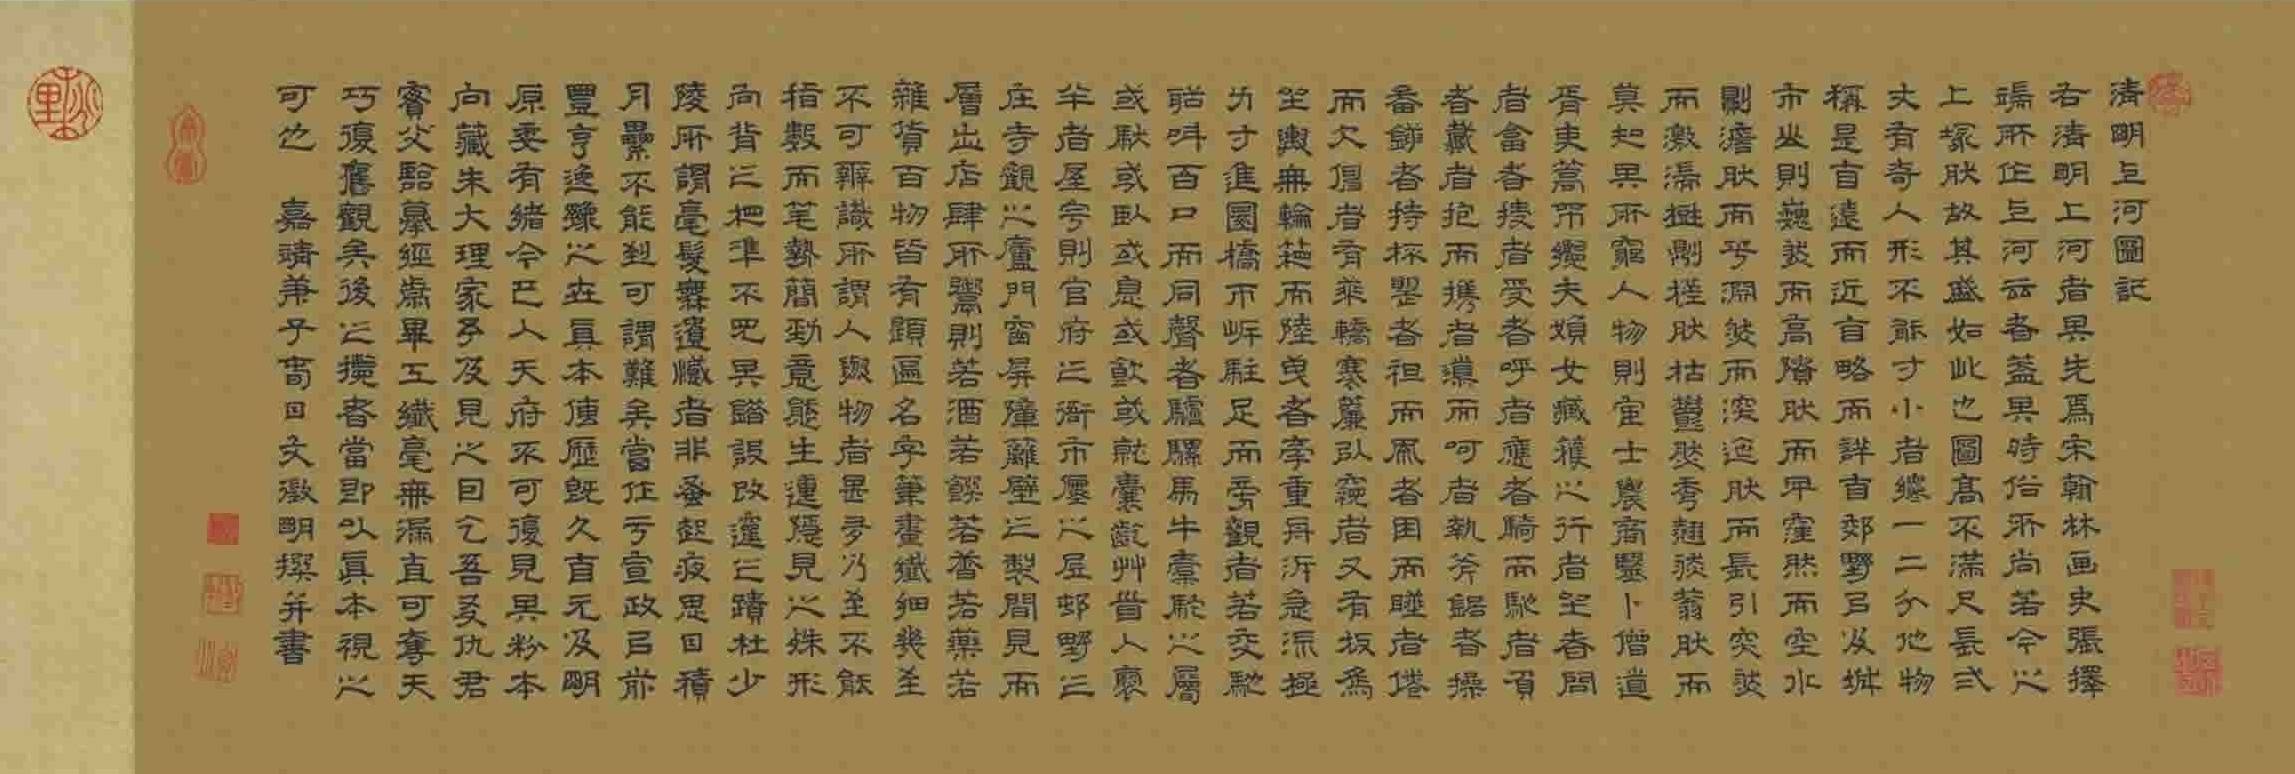 清明上河圖記
右清明上河者其先爲宋翰林画史張擇
端所作上河云者蓋其時俗所尚若今之
上塚肰故其盛如此也圖高不滿尺長弍
丈有奇人形不能寸小者纔一二分他物
稱是自遠而近自略而詳自郊野㠯及城
市山則巍然而高隤肰而卑窪然而空水
則澹肰而平淵然而深迤肰而長引突然
而激湍樹則槎肰枯鬱然秀翹然蓊肰而
莫知其所窮人物則官士農商醫卜僧道
胥吏篙師纜夫婦女臧獲之行者坐者問
者畣者授者受者呼者應者騎而馳者負
者戴者抱而攜者導而呵者執斧鋸者操
畚鍤者持杯罌者袒而風者困而睡者倦
而欠伸者有乘轎搴簾以窺者又有板爲
坐輿無輪箱而陸曳者牽重舟泝急流極
力寸進圜橋帀岸駐足而旁觀者若交馳
叫百口而同聲者驢騾馬牛橐駝之屬
或馱或臥或息或飲或就囊齕艸首入囊
半者屋宇則官府之衙市廛之居邨野之
庄寺觀之廬門窗屏障籬壁之製間見而
層出店肆所鬻則若酒若饌若香若藥若
雜貨百物皆有題匾名字筆畫纖細幾至
不可辨識所謂人與物者甚多乃至不能
指數而筆勢簡勁意態生運隱見之殊形
向背之相準不見其錯誤改竄之蹟杜少
陵所謂毫髮無遺憾者非蚤起夜思日積
月纍不能到可謂難矣當作于宣政㠯前
豐亨逸豫之在眞本傳歷旣久自元及明
原委有緒今已入天府不可復見其粉本
向藏朱大理家予及見之曰乞吾友仇君
實父臨摹經歲畢工纖毫無漏直可奪天
巧復舊觀矣後之攬者當即以眞本視之
可也 嘉靖日文徵明撰并書